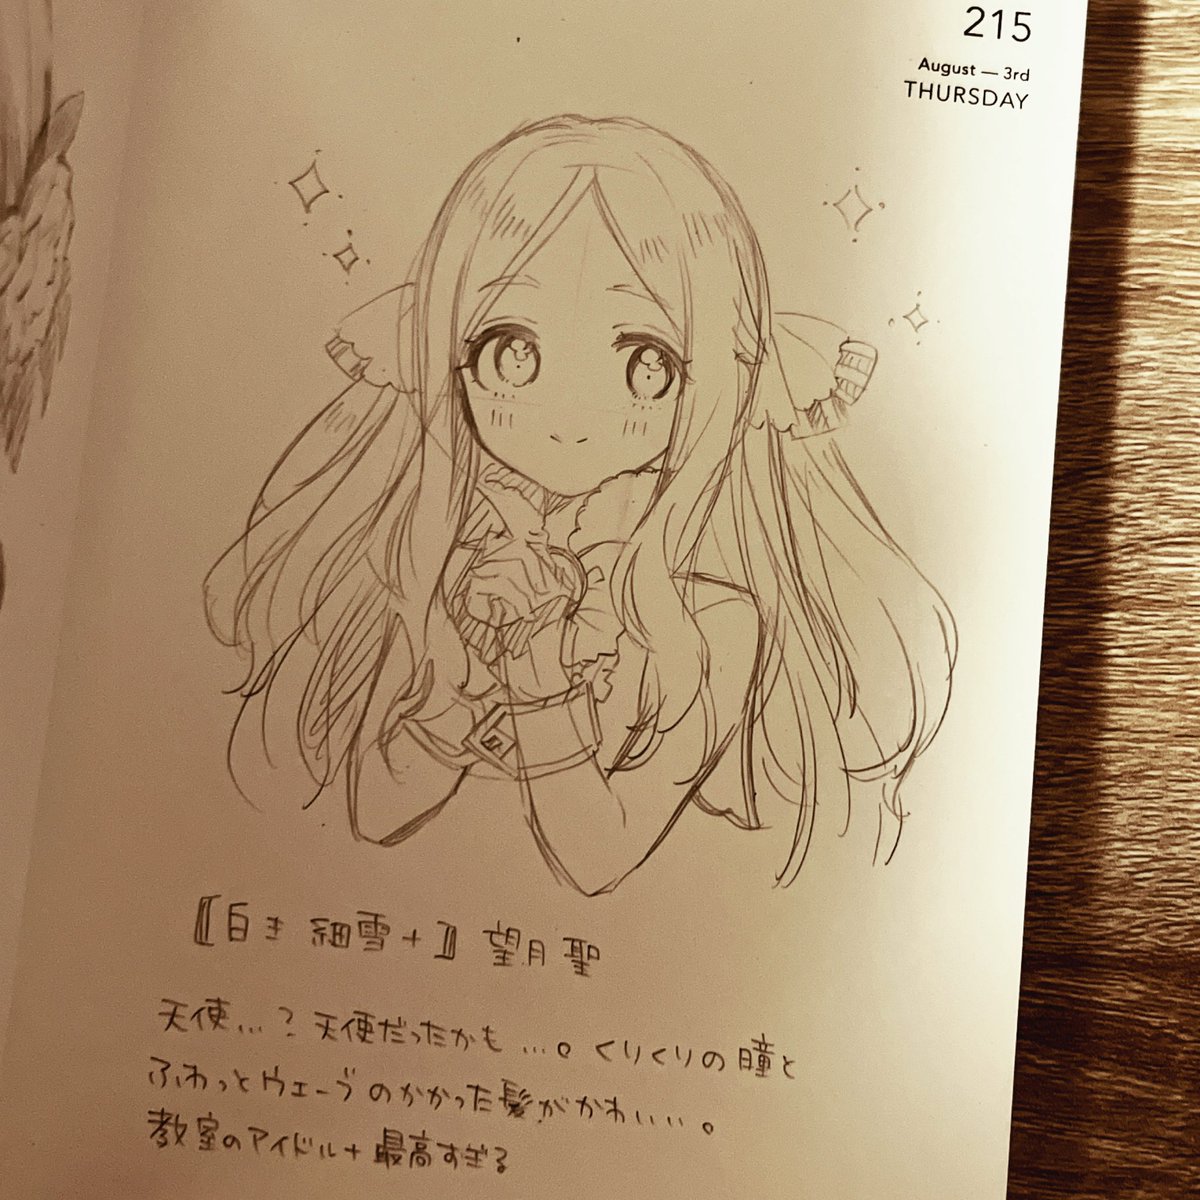 215
August — 3rd
THURSDAY
【白き細雪+】望月聖
天使...? 天使だったかも ...。くりくりの瞳と
ふわっとウェーブのかかった髪がかわいい。
教室のアイドル+ 最高すぎる